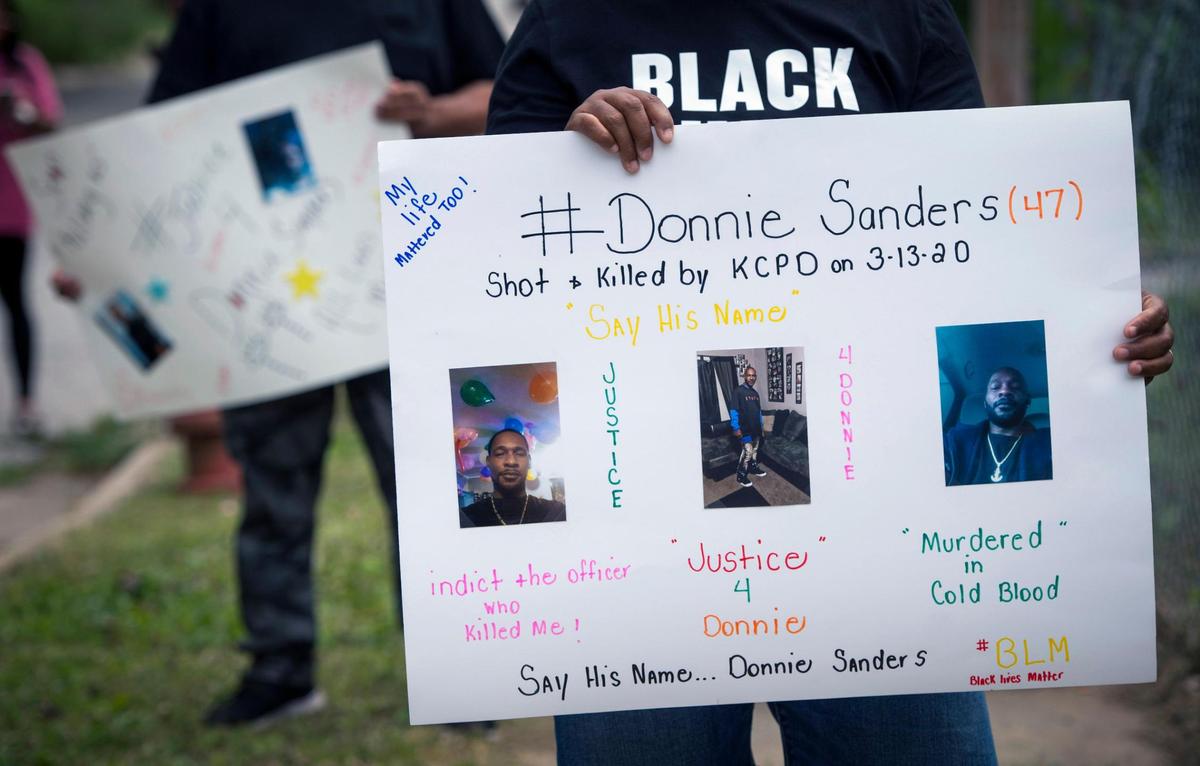 BLACK
My
life
Mattered TOO!
#Donnie Sanders (47)
Shot & Killed by KCPD on 3-13-20
"Say His Name"
JUSTICE
4 DONNIE
indict the officer
who
Killed Me!
"Justice"
4
Donnie
"Murdered"
in
Cold Blood
Say His Name... Donnie Sanders
#BLM
Black lives Matter